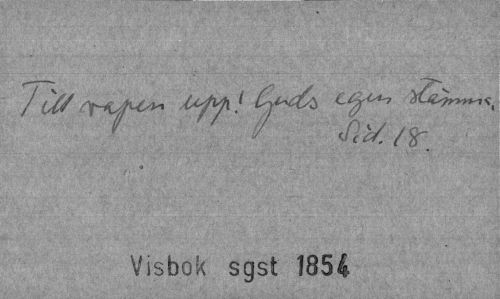 Till vapen upp! Guds egen stämma.
Sid. 18.
Visbok sgst 1854